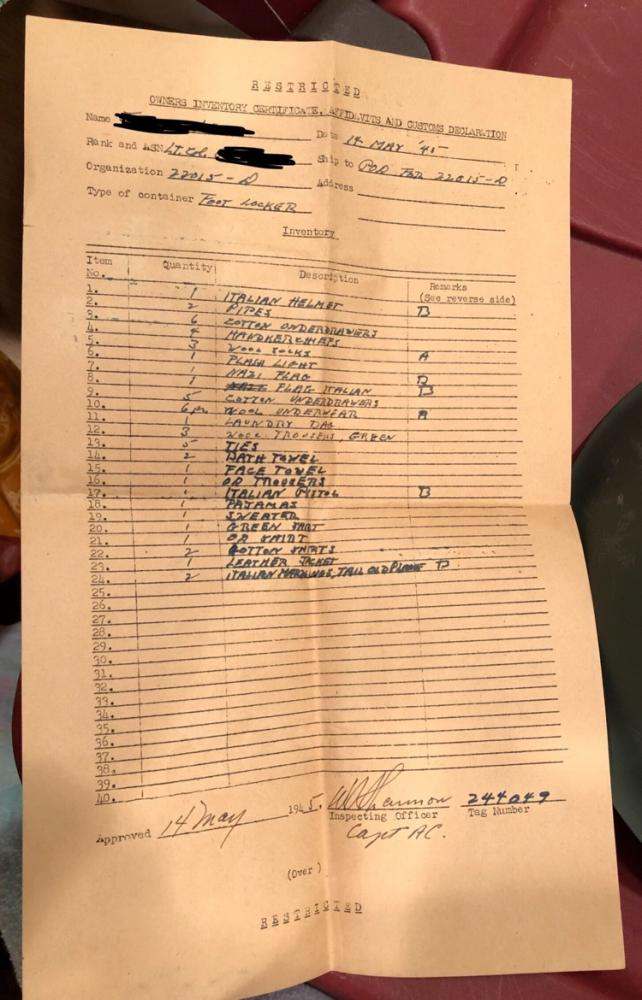 RESTRICTED
OWNERS INVENTORY CERTIFICATE, AFFIDAVITS AND CUSTOMS DECLARATION
Name Date 14 MAY '45
Rank and ASN LT. Col. Ship to POD FOR 22015-D
Organization 22015-D Address
Type of container FOOT LOCKER
Inventory
Item No. Quantity Description Remarks (See reverse side)
1. 1 ITALIAN HELMET B
2. 2 PIPES
3. 6 COTTON UNDERDRAWERS
4. HANDKERCHIEFS
5. 3 WOOL SOCKS
6. 1 FLASH LIGHT A
7. 1 NAZI FLAG B
8. 1 FLAG ITALIAN B
9. 5 COTTON UNDERDRAWERS
10. 6 pr WOOL UNDERWEAR A
11. 1 LAUNDRY BAG
12. 3 WOOL TROUSERS, GREEN
13. 5 TIES
14. 2 BATH TOWEL
15. 1 FACE TOWEL
16. 1 OD TROUSERS
17. 1 ITALIAN PISTOL B
18. 1 PAJAMAS
19. 1 SWEATER
20. 1 GREEN SHIRT
21. 1 OD SHIRT
22. 2 COTTON SHIRTS
23. 1 LEATHER JACKET
24. 2 ITALIAN MARKINGS, TAIL OLD PLANE B
25.
26.
27.
28.
29.
30.
31.
32.
33.
34.
35.
36.
37.
38.
39.
40.
Approved 14 May 1945. Shannon 244049
Inspecting Officer Tag Number
Capt AC.
(Over)
RESTRICTED